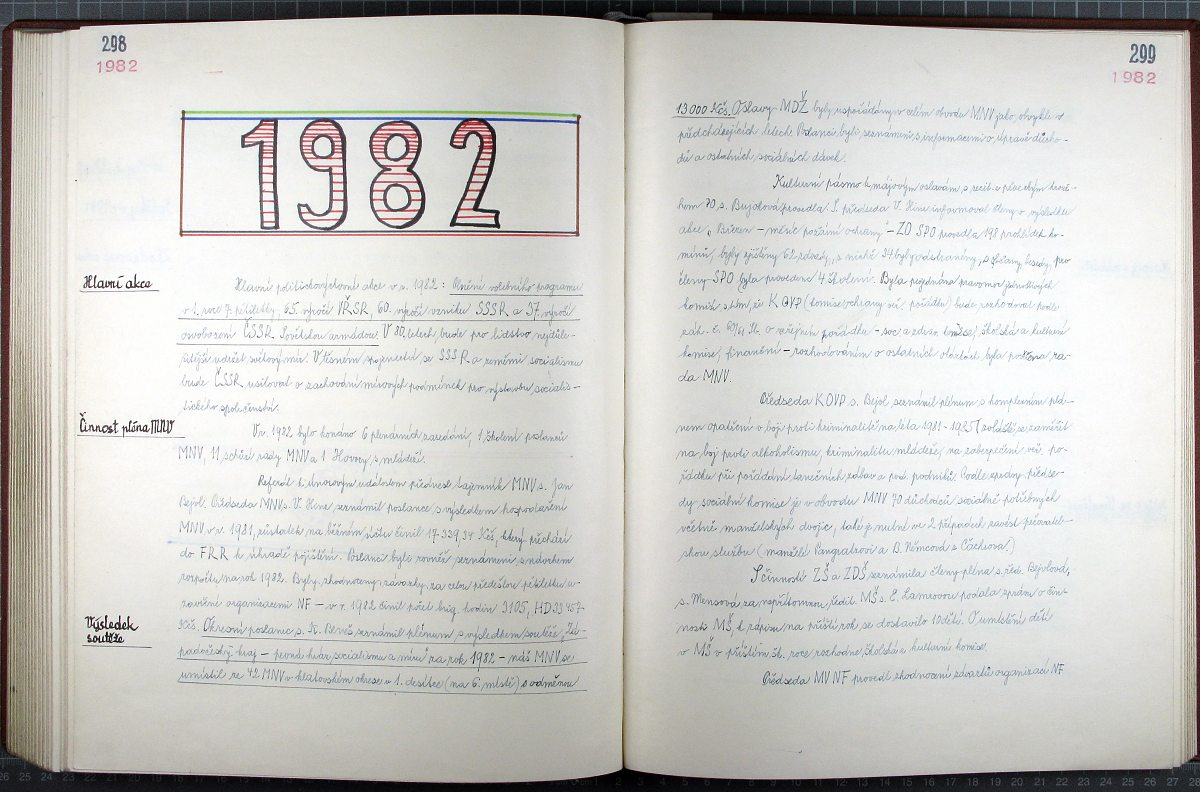 298
1982
1982
Hlavní akce
Hlavní politickovýchovné akce v r. 1982: Plnění volebního programu
v 1. roce 7. pětiletky, 65. výročí VŘSR, 60. výročí vzniku SSSR a 37. výročí
osvobození ČSSR Sovětskou armádou. V 80. letech bude pro lidstvo nejdůle-
žitější udržet světový mír. V těsném spojenectví se SSSR a zeměmi socialismu
bude ČSSR usilovat o zachování mírových podmínek pro výstavbu socialis-
tického společenství.
Činnost pléna MNV
V r. 1982 bylo konáno 6 plenárních zasedání, 1 školení poslanců
MNV, 11 schůzí rady MNV a 1 Hovory s mládeží.
Referát k únorovým událostem přednesl tajemník MNV s. Jan
Bejvl. Předseda MNV s. V. Hira seznámil poslance s výsledkem hospodaření
MNV v r. 1981, zůstatek na běžném účtu činil 17.339,34 Kčs, který přechází
do FRR k úhradě pojištění. Poslanci byli rovněž seznámeni s návrhem
rozpočtu na rok 1982. Byly zhodnoceny závazky za celou předešlou pětiletku u-
zavřené organizacemi NF – v r. 1982 činil počet brig. hodin 3105, HD 33 457.-
Výsledek
soutěže
Kčs. Okresní poslanec s. K. Beneš seznámil plénum s výsledkem soutěže „Zá-
padočeský kraj – pevná hráz socialismu a míru" za rok 1982 – náš MNV se
umístil ze 42 MNV v klatovském okrese v 1. desítce (na 6. místě) s odměnou
299
1982
13 000 Kčs. Oslavy MDŽ byly uspořádány v celém obvodu MNV jako obvykle v
předcházejících letech. Poslanci byli seznámeni s informacemi o úpravě důcho-
dů a ostatních sociálních dávek.
Kulturní pásmo k májovým oslavám s recit. a pěveckým krouž-
kem ZO s. Buzková provedla. S. předseda V. Hira informoval členy o výsledku
akce „Březen – měsíc požární ochrany" – ZO SPO provedla 198 prohlídek ko-
mínů, byly zjištěny 62 závady, z nichž 34 byly odstraněny, s občany besedy, pro
členy SPO byla provedena 4 školení. Byla projednána pravomoc jednotlivých
komisí s tím, že KOVP (komise ochrany veř. pořádku) bude rozhodovat podle
zák. č. 60/61 Sb. o veřejném pořádku – soc. a zdrav. komise, školská a kulturní
komise, finanční – rozhodováním o ostatních otázkách byla pověřena ra-
da MNV.
Předseda KOVP s. Bejvl seznámil plénum s komplexním plá-
nem opatření v boji proti kriminalitě na léta 1981–1985, zvláště se zaměřit
na boj proti alkoholismu, kriminalitu mládeže, na zabezpečení veř. po-
řádku při pořádání tanečních zábav a pod. podniků. Podle zprávy předse-
dy sociální komise je v obvodu MNV 70 důchodců sociálně potřebných
včetně manželských dvojic, také je nutné ve 2 případech zavést pečovatel-
skou službu (manželé Pangratzovi a B. Němcová z Čachrova.)
S činností ZŠ a ZDŠ seznámila členy pléna s. řed. Bejvlová,
s. Mensová za nepřítomnou ředit. MŠ s. E. Lamrovou podala zprávu o čin-
nosti MŠ, k zápisu na příští rok se dostavilo 10 dětí. O umístění dětí
v MŠ v příštím šk. roce rozhodne školská a kulturní komise.
Předseda MV NF provedl zhodnocení závazků organizací NF